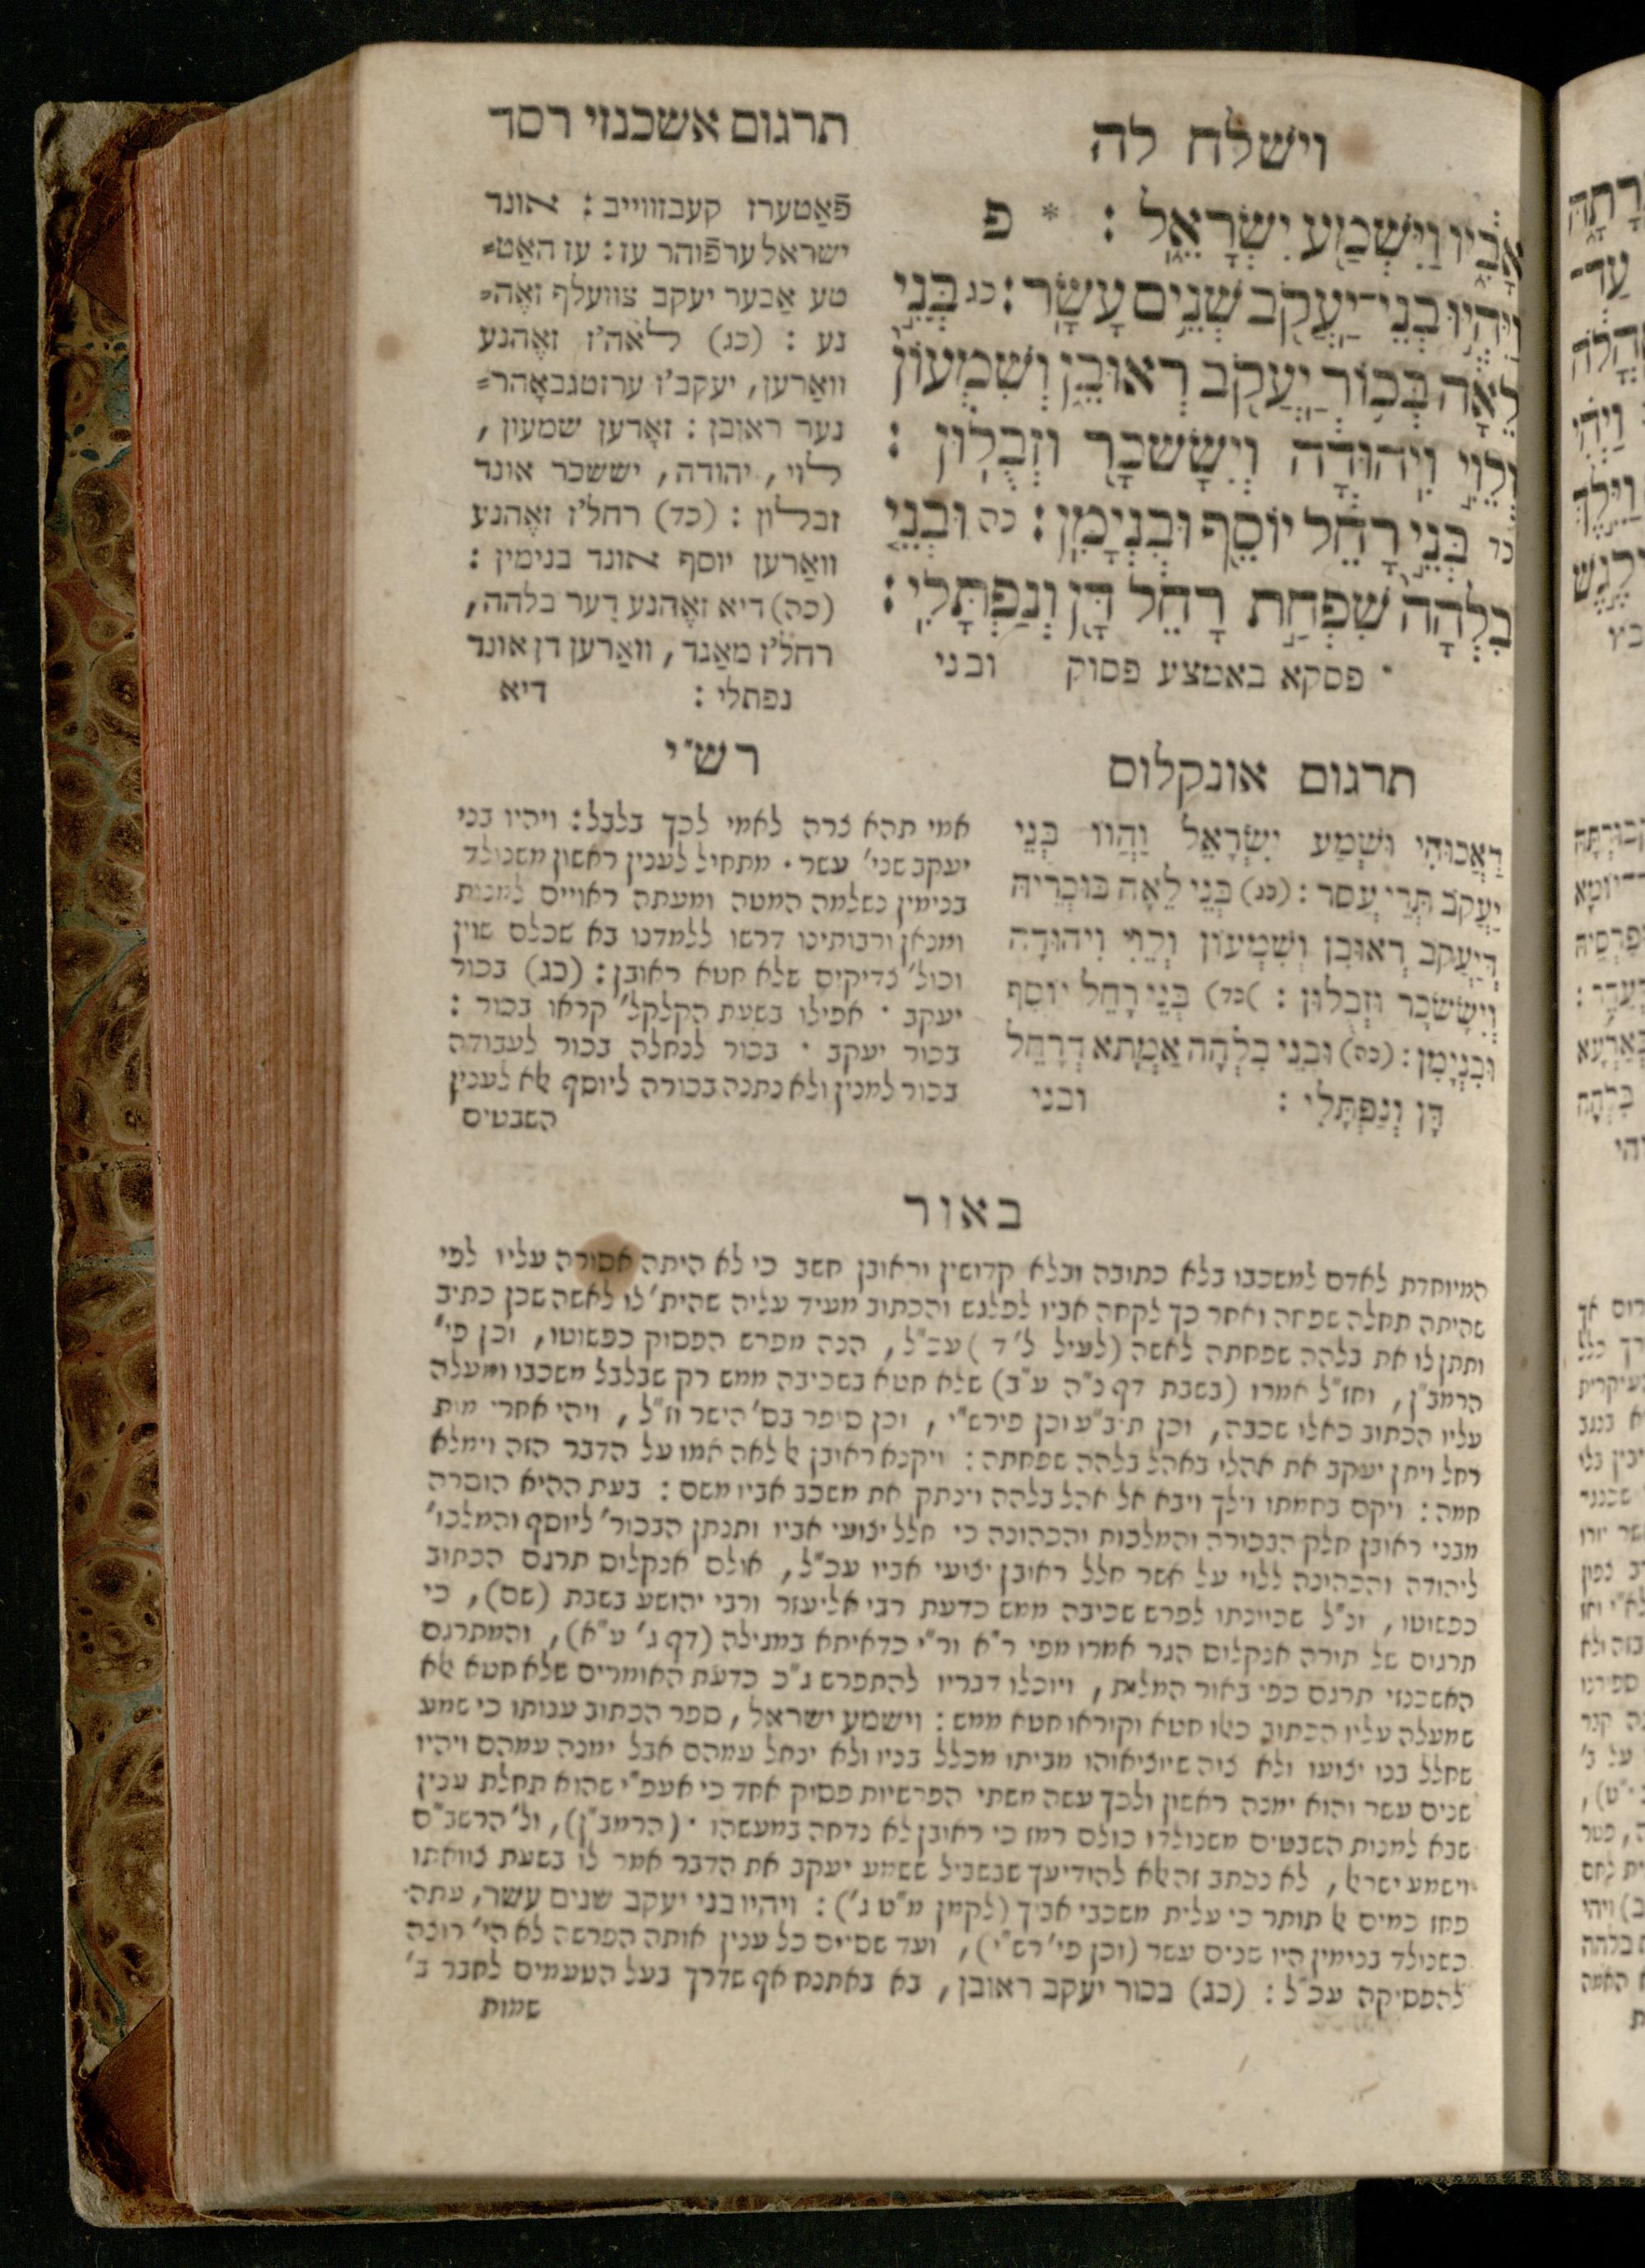 וישלח לה
תרגום אשכנזי רסד
אָבִ֑יו וַיִּשְׁמַ֖ע יִשְׂרָאֵ֑ל : * פ
וַיִּֽהְי֥וּ בְנֵֽי־יַעֲקֹ֖ב שְׁנֵ֥ים עָשָֽׂר : כג בְּנֵ֣י
לֵאָ֔ה בְּכ֥וֹר יַעֲקֹ֖ב רְאוּבֵ֑ן וְשִׁמְעוֹן֙
וְלֵוִ֣י וִֽיהוּדָ֔ה וְיִשָּׂשכָ֖ר וּזְבֻלֽוּן :
כד בְּנֵ֣י רָחֵ֔ל יוֹסֵ֖ף וּבִנְיָמִֽן : כה וּבְנֵ֤י
בִלְהָה֙ שִׁפְחַ֣ת רָחֵ֔ל דָּ֖ן וְנַפְתָּלִֽי :
* פסקא באמצע פסוק ובני
פֿאַטערז קעבזווייב : אונד
ישראל ערפֿוהר עז : עז האַט=
טע אַבער יעקב צוועלף זאֶה=
נע : (כג) לאה'ז זאֶהנע
וואַרען, יעקב'ז ערזטגבאָהר=
נער ראובן : זאָדען שמעון,
לוי, יהודה, יששכר אונד
זבלון : (כד) רחל'ז זאֶהנע
וואַרען יוסף אונד בנימין :
(כה) דיא זאֶהנע דער בלהה,
רחל'ז מאַגד, וואַרען דן אונד
נפתלי : דיא
תרגום אונקלוס
דַאֲבוּהִי וּשְׁמַע יִשְׂרָאֵל וַהֲווֹ בְּנֵי
יַעֲקֹב תְּרֵי עֲסַר : (כג) בְּנֵי לֵאָה בּוּכְרֵיהּ
דְּיַעֲקֹב רְאוּבֵן וְשִׁמְעוֹן וְלֵוִי וִיהוּדָה
וְיִשָּׂשכָר וּזְבֻלוּן : (כד) בְּנֵי רָחֵל יוֹסֵף
וּבִנְיָמִן : (כה) וּבְנֵי בִלְהָה אַמְתָא דְרָחֵל
דָּן וְנַפְתָּלִי : ובני
רש"י
אמי תהא צרה לאמי לכך בלבל : ויהיו בני
יעקב שני' עשר . מתחיל לענין ראשון משנולד
בנימין נשלמה המטה ומעתה ראויים למנות
ומנאן ורבותינו דרשו ללמדנו בא שכלם שוין
וכול' צדיקים שלא חטא ראובן : (כג) בכור
יעקב . אפילו בשעת הקלקל' קראו בכור :
בכור יעקב . בכור לנחלה בכור לעבודה
בכור למנין ולא נתנה בכורה ליוסף אלא לענין
השבטים
באור
המיוחדת לאדם למשכבו בלא כתובה ובלא קדושין וראובן חשב כי לא היתה אסורה עליו לפי
שהיתה תחלה שפחה ואחר כך לקחה אביו לפלגש והכתוב מעיד עליה שהית' לו לאשה שכן כתיב
ותתן לו את בלהה שפחתה לאשה (לעיל ל' ד) עכ"ל, הנה מפרש הפסוק כפשוטו, וכן פי'
הרמב"ן, וחז"ל אמרו (בשבת דף נ"ה ע"ב) שלא חטא בשכיבה ממש רק שבלבל משכבו ומעלה
עליו הכתוב כאלו שכבה, וכן ת"יב"ע וכן פירש"י, וכן סיפר בס' הישר וז"ל, ויהי אחרי מות
רחל ויתן יעקב את אהלי באהל בלהה שפחתה : ויקנא ראובן אל לאה אמו על הדבר הזה וימלא
חמה : ויקם בחמתו וילך ויבא אל אהל בלהה וינתק את משכב אביו משם : בעת ההיא הוסרה
מבני ראובן חלק הבכורה והמלכות והכהונה כי חלל יצועי אביו ותנתן הבכור' ליוסף והמלכו'
ליהודה והכהונה ללוי על אשר חלל ראובן יצועי אביו עכ"ל, אולם אנקלוס תרגם הכתוב
כפשוטו, ונ"ל שכיונתו לפרש שכיבה ממש כדעת רבי אליעזר ורבי יהושע בשבת (שם), כי
תרגום של תורה אנקלוס הגר אמרו מפי ר"א ור"י כדאיתא במגילה (דף ג' ע"א), והמתרגם
האשכנזי תרגם כפי באור המלות, ויוכלו דבריו להתפרש ג"כ כדעת האומרים שלא חטא אלא
שמעלה עליו הכתוב כאלו חטא וקוראו חטא ממש : וישמע ישראל, ספר הכתוב ענותו כי שמע
שחלל בנו יצועו ולא צוה שיוציאוהו מביתו מכלל בניו ולא ינחל עמהם אבל ימנה עמהם ויהיו
שנים עשר והוא ימנה ראשון ולכך עשה משתי הפרשיות פסיק אחד כי אעפ"י שהוא תחלת ענין
שבא למנות השבטים משנולדו כולם רמז כי ראובן לא נדחה במעשהו . (הרמב"ן), ול' הרשב"ם
וישמע ישראל, לא נכתב זה אלא להודיעך שבשביל ששמע יעקב את הדבר אמר לו בשעת צוואתו
פחז כמים אל תותר כי עלית משכבי אביך (לקמן מ"ט ג') : ויהיו בני יעקב שנים עשר, עתה
כשנולד בנימין היו שנים עשר (וכן פי' רש"י), ועד שסיים כל ענין אותה הפרשה לא הי' רוצה
להפסיקה עכ"ל : (כג) בכור יעקב ראובן, בא באתנח אף שדרך בעל הטעמים לחבר ב'
שמות